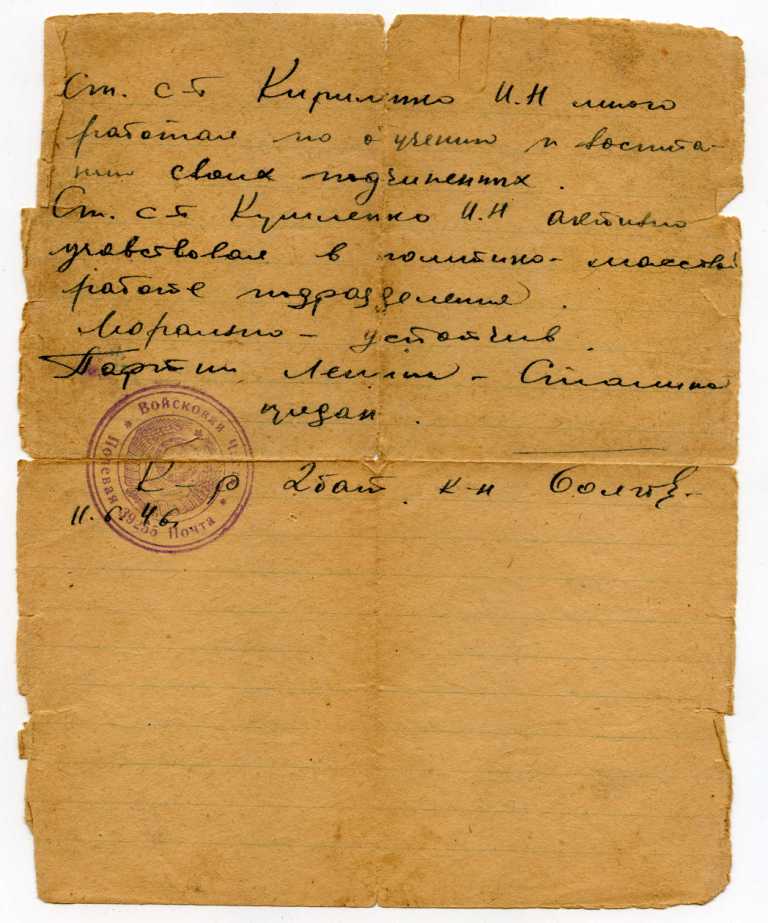 Ст. с-т Кириленко И.Н много
работал по обучению и воспита-
нию своих подчиненных.
Ст. с-т Кириленко И.Н активно
учавствовал в политико-массовой
работе подразделения.
Морально-устойчив.
Партии Ленина-Сталина
предан.
К-р 2 бат. к-н
11.6.46
Войсковая Ч
Полевая Почта 39255